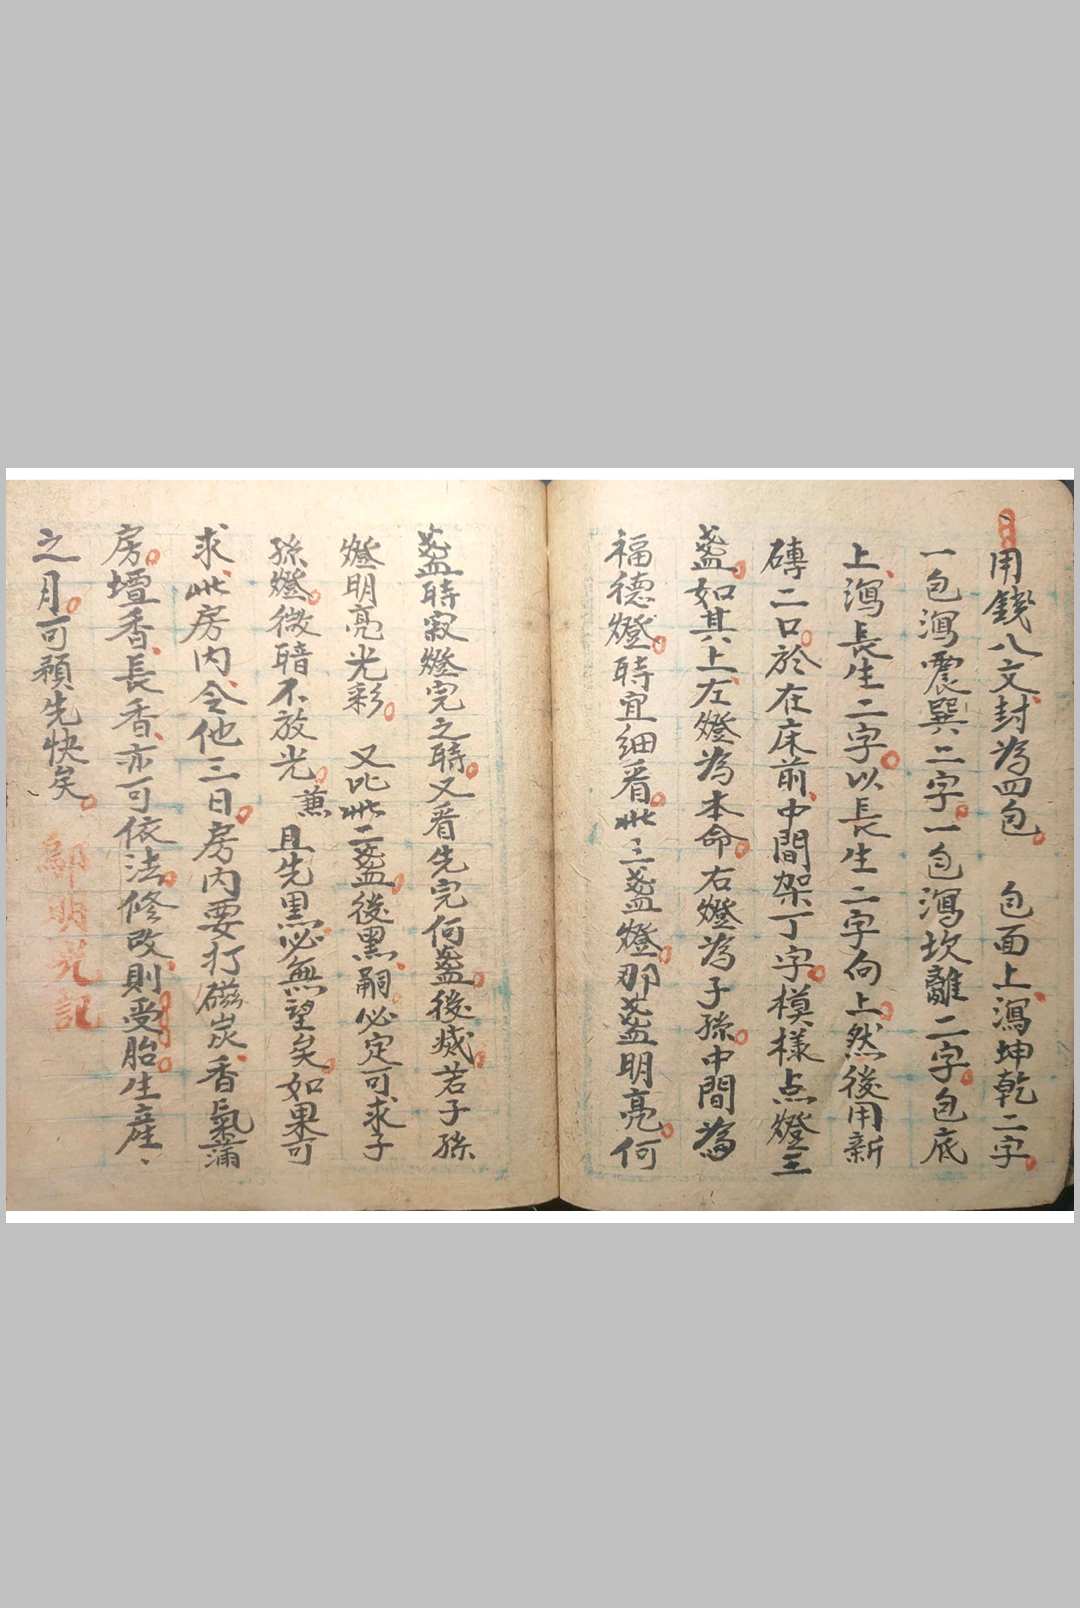 用錢八文封為四包 包面上瀉坤乾二字
一包瀉震巽二字一包瀉坎離二字包底
上瀉長生二字以長生二字向上然後用新
磚二口於在床前中間架丁字模樣点燈三
盞如其上左燈為本命右燈為子孫中間為
福德燈時宜細看此三盞燈那盞明亮何
盞時寂燈完之時又看先完何盞後滅若子孫
燈明亮光彩 又比此二盞後黑嗣必定可求子
孫燈微暗不放光 蕙且先黑必無望矣如果可
求此房内令他三日房内要打磁炭香氣蒲
房壇香長香亦可依法修改則受胎生産
之月可預先快矣 明光記